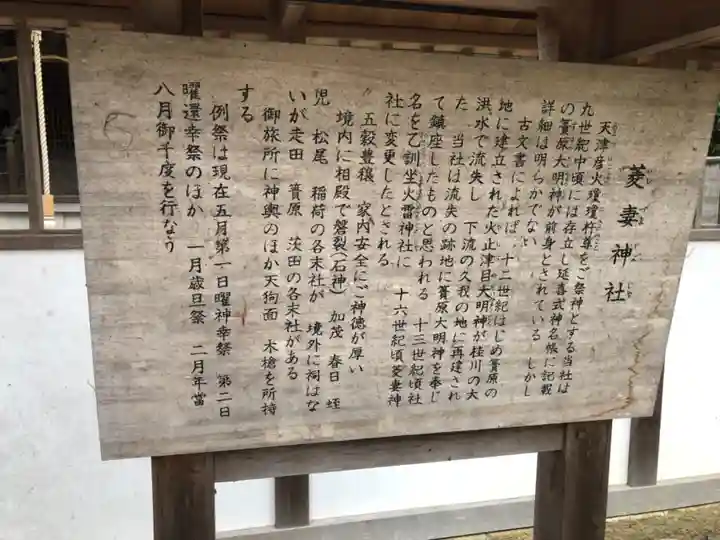 菱妻神社
天津彦火瓊瓊杵尊をご祭神とする当社は
九世紀中頃には存立し延喜式神名帳に記載
の簀原大明神が前身とされている しかし
詳細は明らかでない
古文書によれば 十二世紀はじめ簀原の
地に建立された火止津目大明神が桂川の大
洪水で流失し 下流の久我の地に再建され
た 当社は流失の跡地に簀原大明神を奉じ
て鎮座したものと思われる 十三世紀頃社
名を乙訓坐火雷神社に 十六世紀頃菱妻神
社に変更したとされる
五穀豊穣 家内安全にご神徳が厚い
境内に相殿で磐裂(石神) 加茂 春日 蛭
児 松尾 稲荷の各末社が 境外に祠はな
いが走田 簀原 茨田の各末社がある
御旅所に神輿のほか天狗面 木槍を所持
する
例祭は現在五月第一日曜神幸祭 第二日
曜還幸祭のほか 一月歳旦祭 二月年當
八月御千度を行なう